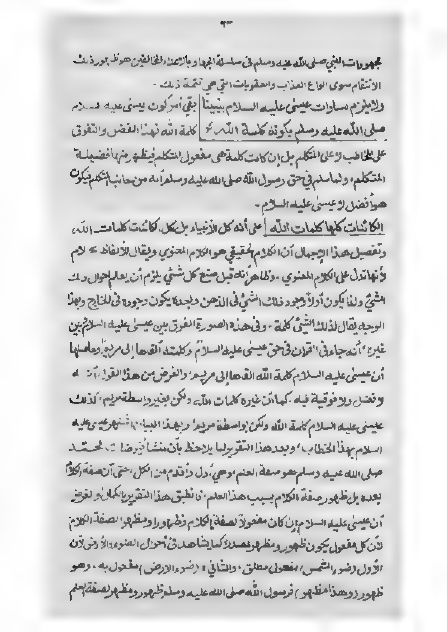 ٢٣
مجهودات النبي صلى الله عليه وسلم في سلسلة الجهاد بالاعداء المخالفين هو ظهور ذلك
الانتقام سوى انواع العذاب والعقوبات التي هي تتمة ذلك.
ولا يلزم مساوات عيسى عليه السلام بنبينا بقي أمر كون عيسى عليه السلام
صلى الله عليه وسلم بكونه كلمة الله كلمة الله فهذا الفضل والتفوق
على المخاطب لا على المتكلم بل إن كانت كلمة هي مفعول المتكلم فيظهر منها فضيلة
المتكلم، ولما سلم في حق رسول الله صلى الله عليه وسلم أنه من جانب المتكلم فيكون
هو أفضل لا عيسى عليه السلام.
الكائنات كلها كلمات الله على أنه كل الأنبياء بل كل كائنات كلمات الله،
وتفصيل هذا الإجمال أن الكلام الحقيقي هو الكلام المعنوي ويقال للألفاظ كلام
لأنها تدل على الكلام المعنوي. وظاهر أنه قبل صنع كل شيء يلزم أن يعلم احوال ذلك
الشيء ولذا يكون أولا وجود ذلك الشيء في الذهن وبعده يكون وجوده في الخارج وبهذا
الوجه يقال لذلك الشيء كلمة. وفي هذه الصورة الفرق بين عيسى عليه السلام وبين
غيره، أنه جاء في القرآن في حق عيسى عليه السلام وكلمته ألقاها إلى مريم، وحاصلها
أن عيسى عليه السلام كلمة الله ألقاها إلى مريم، والغرض من هذا القول أنه
لا فضل ولا فوقية فيه، كما أن غيره كلمات الله، ولكن بغير واسطة مريم، كذلك
عيسى عليه السلام كلمة الله ولكن بواسطة مريم، وبهذا البيان اشتهر عيسى عليه
السلام بهذا الخطاب، وبعد هذا التقرير لما يلاحظ بأن منشأ فيوضات محمد
صلى الله عليه وسلم هو صفة العلم، وهي أول وأقدم من الكل، حتى أن صفة الكلام
بعده بل ظهور صفة الكلام بسبب هذا العلم، فانطبق هذا التقرير بالكمال، والغرض
أن عيسى عليه السلام إن كان مفعولا لصفة الكلام فظهور ومظهر لصفة الكلام
لأن كل مفعول يكون ظهور ومظهر لمصدر كما يشاهد في أحوال الضوء والأرض لأن
الأول (ضوء الشمس) مفعول مطلق، والثاني (ضوء الأرض) مفعول به، وهو
ظهور (وهذا مظهر) فرسول الله صلى الله عليه وسلم ظهور ومظهر لصفة العلم